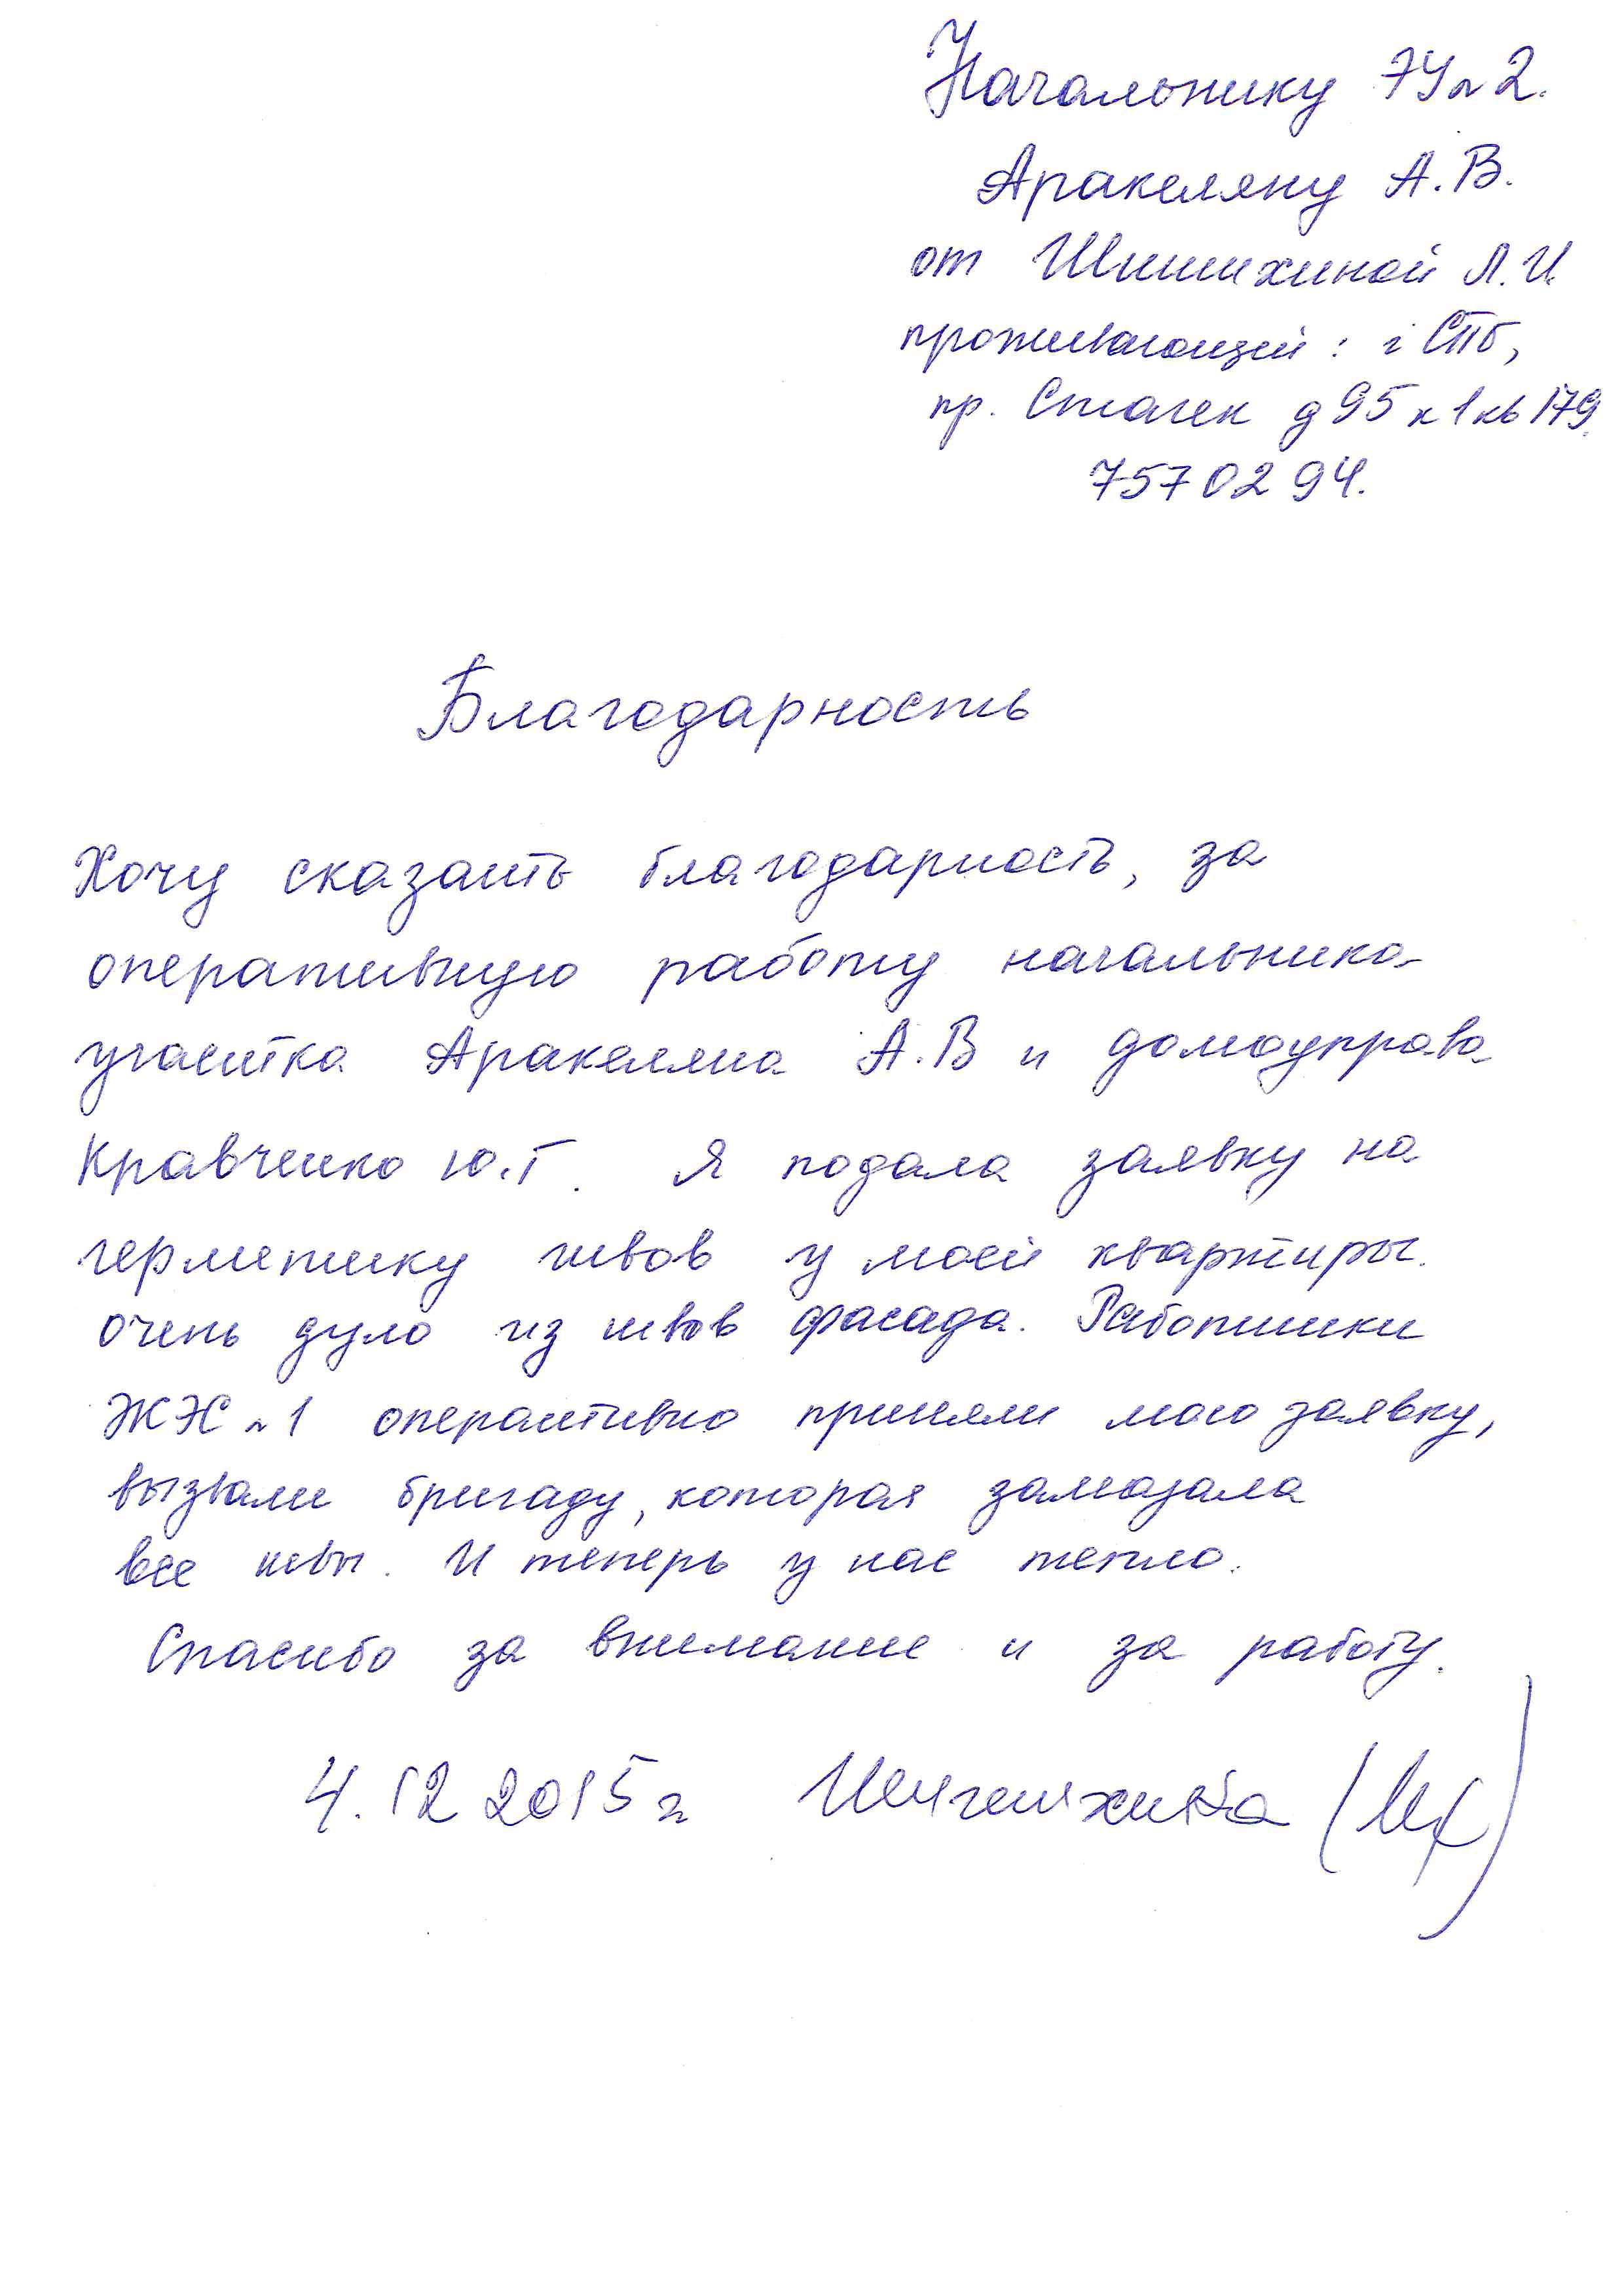 Начальнику ТУ№2.
Аракеляну А.В.
от Шишихиной Л.И.
проживающей: г СПб,
пр. Стачек д 95 к 1 кв 179.
757 02 94.
Благодарность
Хочу сказать благодарность, за
оперативную работу начальника
участка Аракеляна А.В и домоуправа
Кравченко Ю.Г. Я подала заявку на
герметику швов у моей квартиры.
очень дуло из швов фасада. Работники
ЖЭС №1 оперативно приняли мою заявку,
вызвали бригаду, которая замазала
все швы. И теперь у нас тепло.
Спасибо за внимание и за работу.
4.12 2015 г